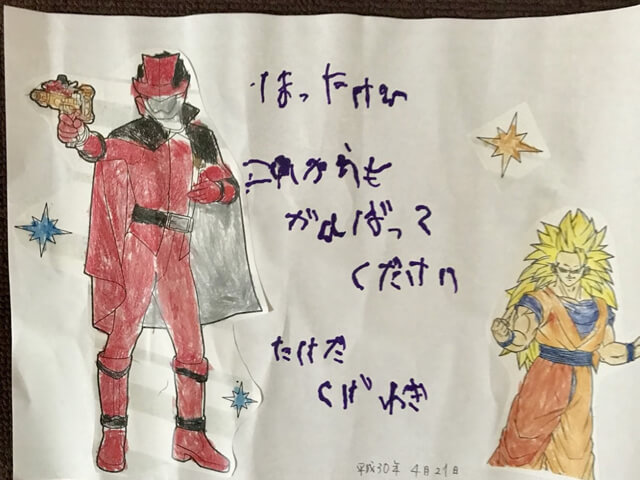 はったさん
これからも
がんばって
ください
たけだ
平成30年 4月21日